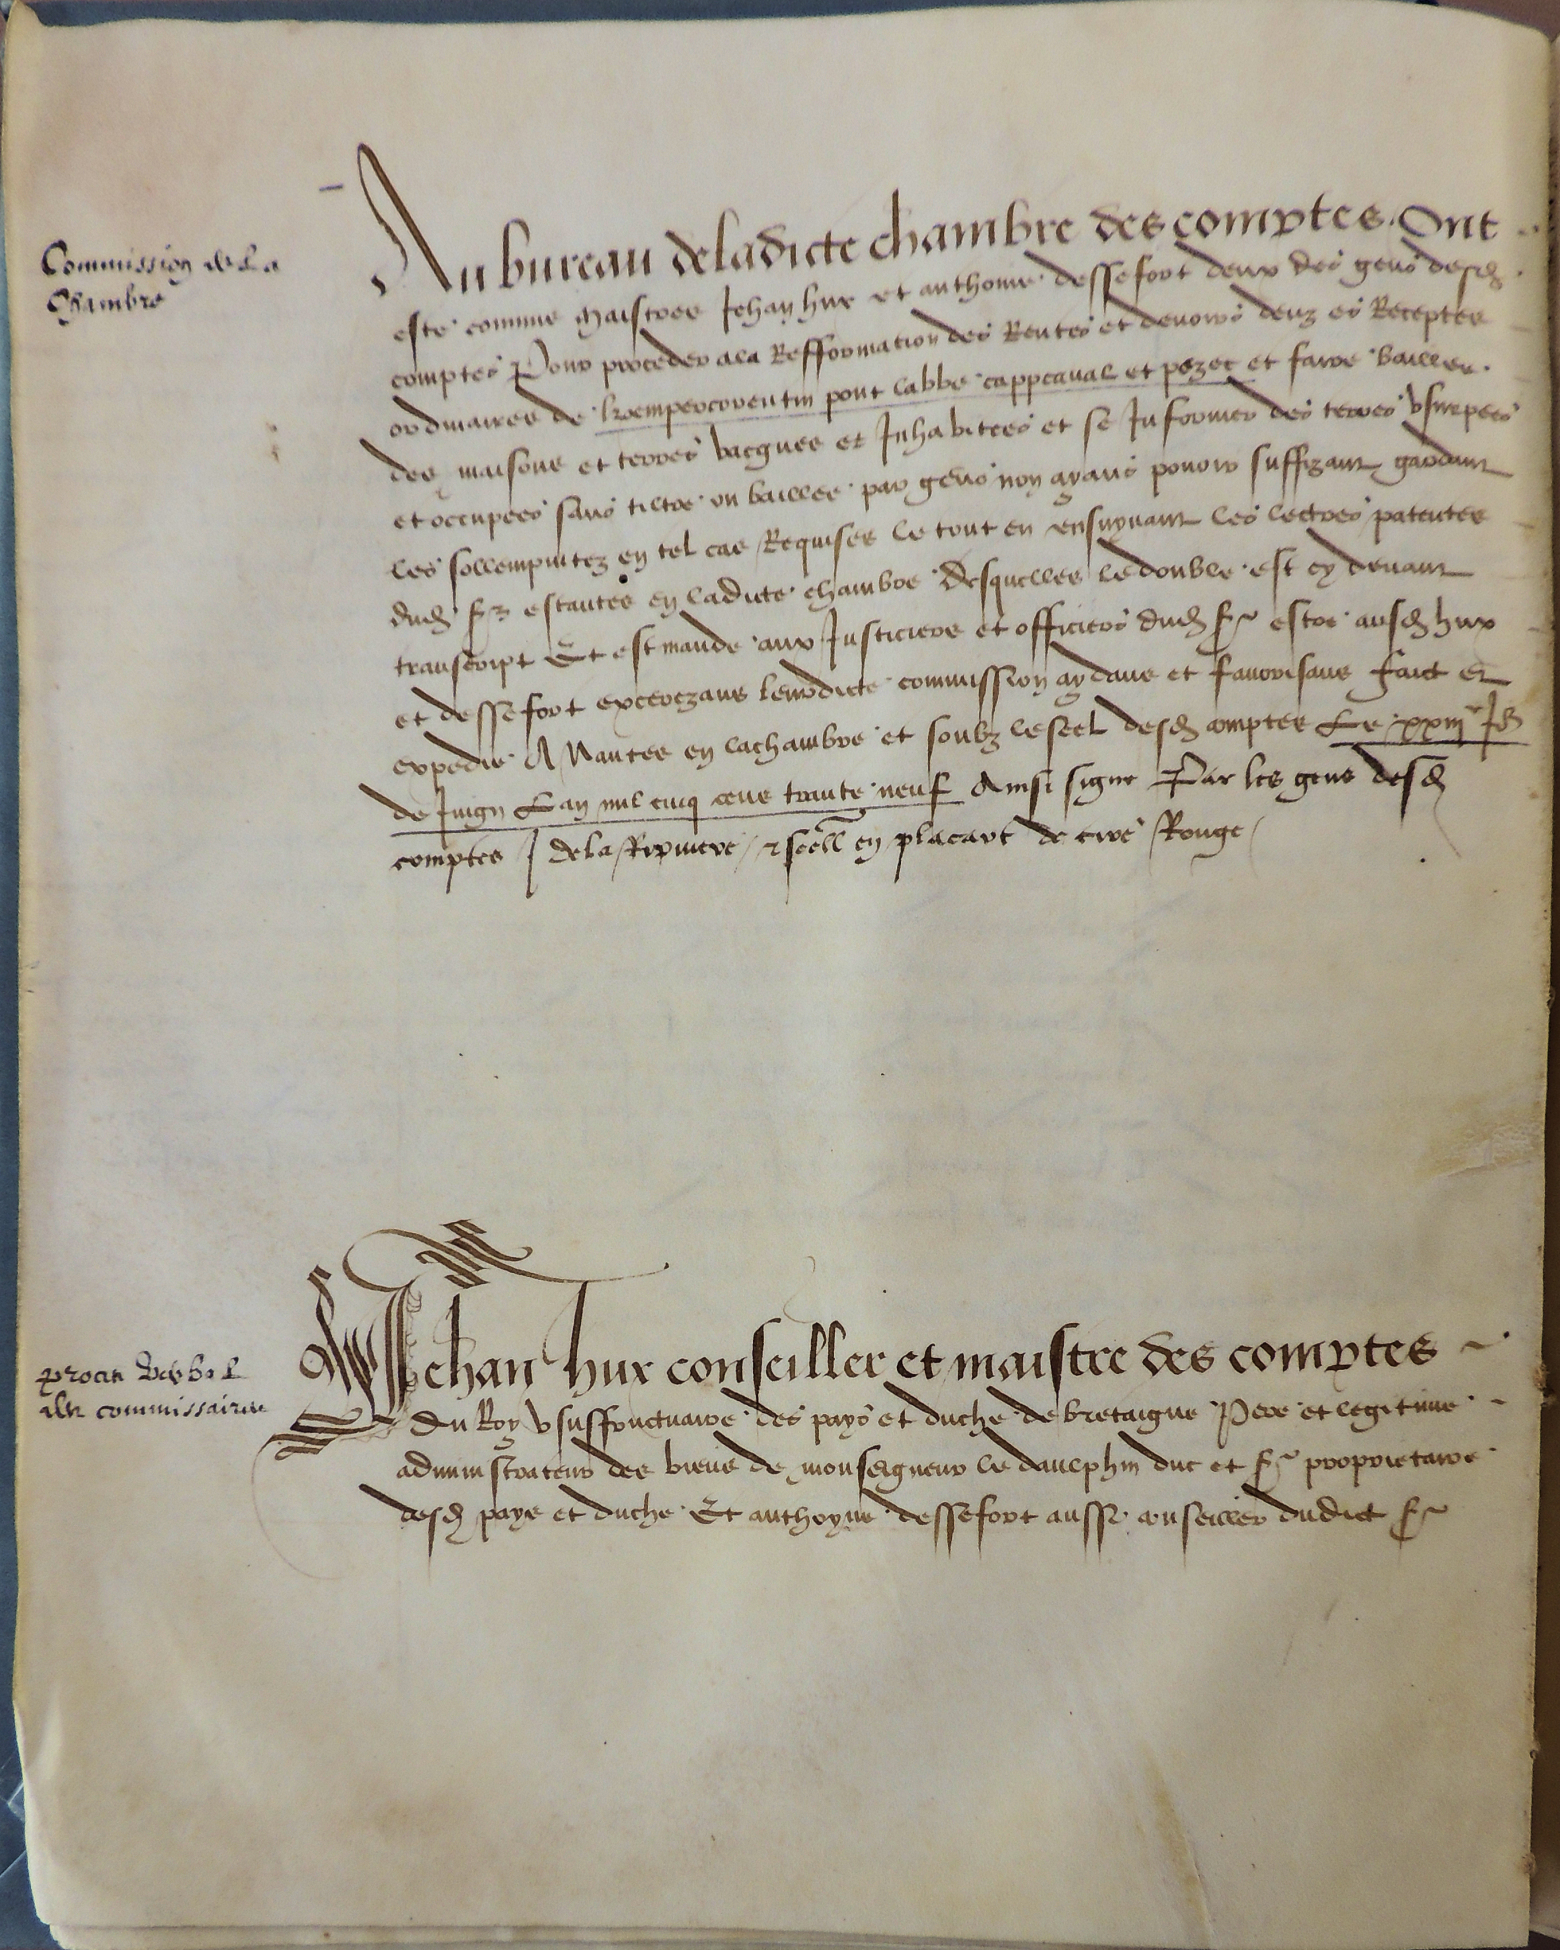 Commission de la
Chambre
Au bureau de ladicte chambre des comptes. Ont
este commis maistres Jehan hux et anthoine dessefort deux des gens desd
comptes Pour proceder a la Refformation des Rentes et devoirs deuz es Receptes
ordinaires de kempercorentin pont labbe cappcaval et pozec et faire bailler
des maisons et terres vacques et Inhabitees et se Informer des terres usurpees
et occupees sans tiltre ou baillee par gens non ayans povoir suffizant gardant
les sollempnitez en tel cas Requises le tout en ensuyvant les lectres patentes
dud sr estantes en ladicte chambre desquelles le double est cy devant
transcript Et est mande aux Justiciers et officiers dud sr estre ausd hux
et dessefort excerczans leurdicte commission aydans et favorisans faict et
expedie A Nantes en la chambre et soubz le seel desd comptes Le xxiiie Jor
de Juign L an mil cincq cens trante neuf Ainsi signe Par les gens desd
comptes J de la Ripviere / & scell en placart de cire Rouge /
proces verbal
des commissaires
Jehan hux conseiller et maistre des comptes
Du Roy usuffructuaire des pays et duche de bretaigne Pere et legitime
administrateur des biens de monseigneur le daulphin duc et sr proprietaire
desd pays et duche Et anthoyne dessefort aussi conseiller dudict sr